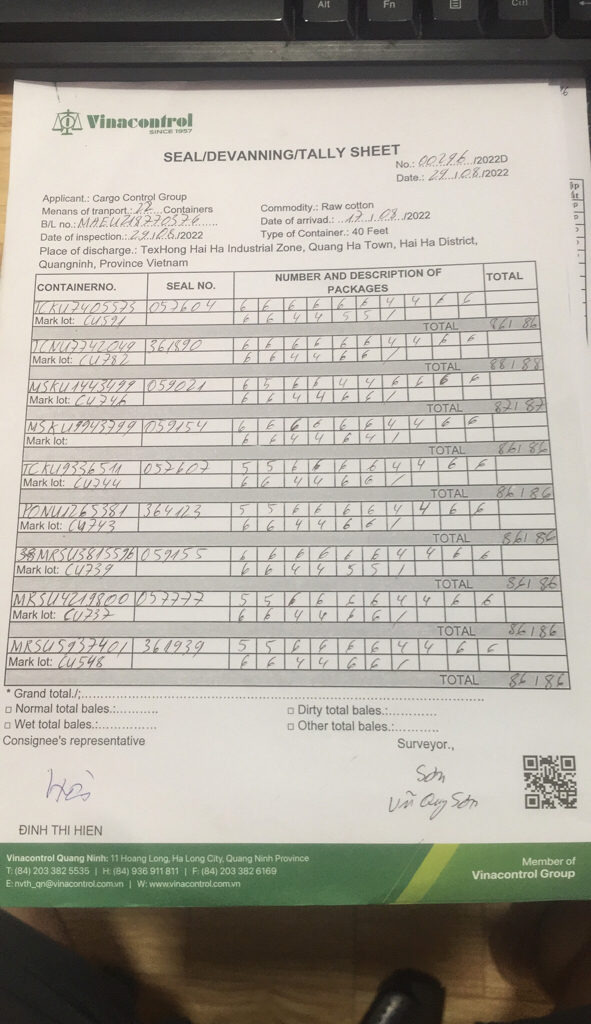 Alt
Fn
Ctrl
Vinacontrol
SINCE 1957
SEAL/DEVANNING/TALLY SHEET
No.: 00296 /2022D
Date.: 29 / 08 /2022
Applicant.: Cargo Control Group
Menans of tranport.: 22 Containers
Commodity.: Raw cotton
B/L no.: MAEU218770576
Date of arrivad.: 17 / 08 /2022
Date of inspection.: 29 / 08 /2022
Type of Container.: 40 Feet
Place of discharge.: TexHong Hai Ha Industrial Zone, Quang Ha Town, Hai Ha District,
Quangninh, Province Vietnam
CONTAINERNO. SEAL NO. NUMBER AND DESCRIPTION OF PACKAGES TOTAL
TCKU7405573 057604 6 6 6 6 6 6 4 4 6 6
Mark lot: CU591 6 6 4 4 5 5 /
TOTAL 86 / 86
TCNU7742049 361890 6 6 6 6 6 6 4 4 6 6
Mark lot: CU782 6 6 4 4 6 6 /
TOTAL 88 / 88
MSKU1443499 059021 6 5 6 6 4 4 6 6 6 6
Mark lot: CU746 6 6 4 4 6 6 /
TOTAL 87 / 87
MSKU9943799 059154 6 6 6 6 6 6 4 4 6 6
Mark lot: 6 6 4 4 6 4 /
TOTAL 86 / 86
TCKU9336511 057607 5 5 6 6 6 6 4 4 6 6
Mark lot: CU744 6 6 4 4 6 6 /
TOTAL 86 / 86
PONU1265381 364123 5 5 6 6 6 6 4 4 6 6
Mark lot: CU743 6 6 4 4 6 6 /
TOTAL 86 / 86
MRSU3815596 059155 6 6 6 6 6 6 4 4 6 6
Mark lot: CU739 6 6 4 4 5 5 /
TOTAL 86 / 86
MRSU4219800 057777 5 5 6 6 6 6 4 4 6 6
Mark lot: CU737 6 6 4 4 6 6 /
TOTAL 86 / 86
MRSU5937401 361939 5 5 6 6 6 6 4 4 6 6
Mark lot: CU548 6 6 4 4 6 6 /
TOTAL 86 / 86
* Grand total./;
□ Normal total bales.:...........
□ Dirty total bales.:............
□ Wet total bales.:...............
□ Other total bales.:............
Consignee's representative
Surveyor.,
Sơn
Vũ Quý Sơn
ĐINH THI HIEN
Vinacontrol Quang Ninh: 11 Hoang Long, Ha Long City, Quang Ninh Province
T: (84) 203 382 5535 | H: (84) 936 911 811 | F: (84) 203 382 6169
E: nvth_qn@vinacontrol.com.vn | W: www.vinacontrol.com.vn
Member of
Vinacontrol Group